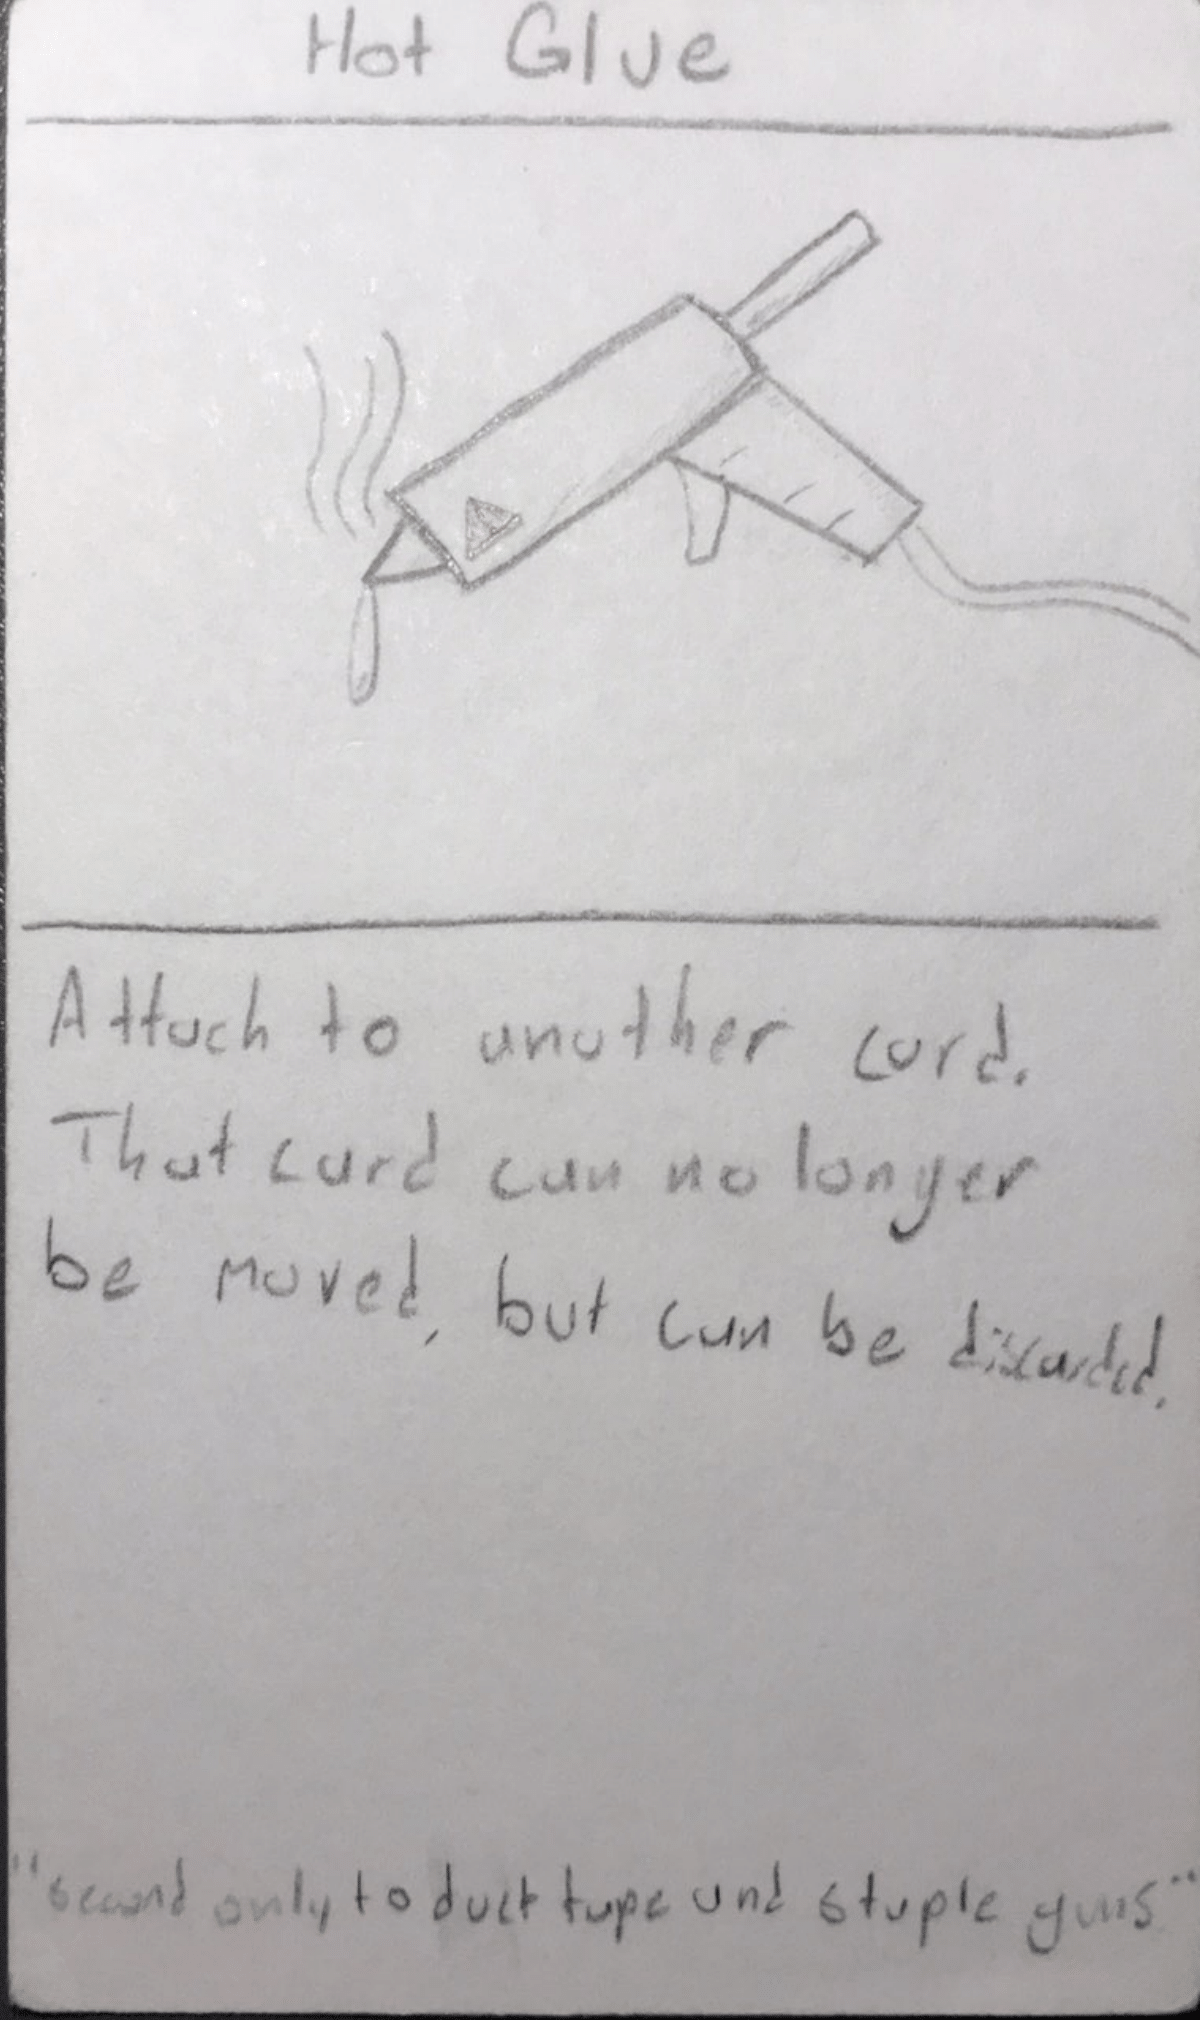 Hot Glue
Attach to another card.
That card can no longer
be moved, but can be discarded.
"second only to duct tape and staple guns"